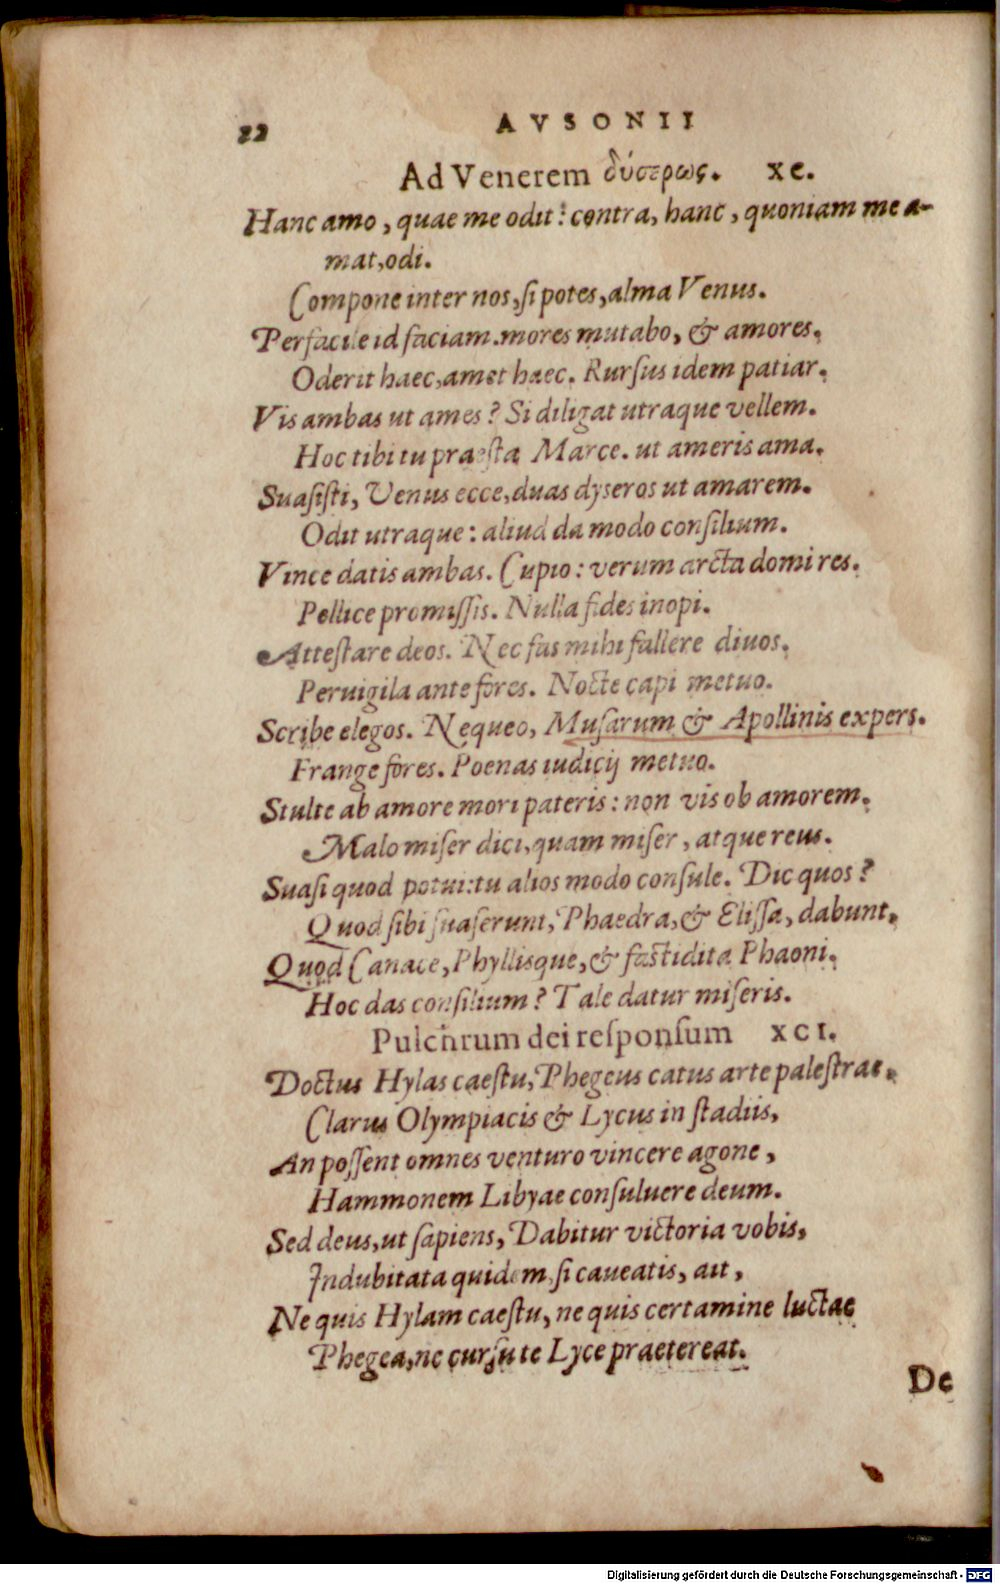 22 AVSONII
Ad Venerem δύσερως. XC.
Hanc amo, quae me odit: contra, hanc, quoniam me a-
mat, odi.
Compone inter nos, si potes, alma Venus.
Perfacile id faciam. mores mutabo, & amores.
Oderit haec, amet haec. Rursus idem patiar.
Vis ambas ut ames? Si diligat utraque vellem.
Hoc tibi tu praesta Marce. ut ameris ama.
Suasisti, Venus ecce, duas dyseros ut amarem.
Odit utraque: aliud da modo consilium.
Vince datis ambas. Cupio: verum arcta domi res.
Pellice promissis. Nulla fides inopi.
Attestare deos. Nec fas mihi fallere divos.
Pervigila ante fores. Nocte capi metuo.
Scribe elegos. Nequeo, Musarum & Apollinis expers.
Frange fores. Poenas iudicij metuo.
Stulte ab amore mori pateris: non vis ob amorem.
Malo miser dici, quam miser, atque reus.
Suasi quod potui: tu alios modo consule. Dic quos?
Quod sibi suaserunt, Phaedra, & Elissa, dabunt.
Quod Canace, Phyllisque, & fastidita Phaoni.
Hoc das consilium? Tale datur miseris.
Pulchrum dei responsum XCI.
Doctus Hylas caestu, Phegeus catus arte palestrae.
Clarus Olympiacis & Lycus in stadiis,
An possent omnes venturo vincere agone,
Hammonem Libyae consuluere deum.
Sed deus, ut sapiens, Dabitur victoria vobis,
Indubitata quidem, si caveatis, ait,
Ne quis Hylam caestu, ne quis certamine luctae
Phegea, ne cursu te Lyce praetereat.
De
Digitalisierung gefördert durch die Deutsche Forschungsgemeinschaft - DFG